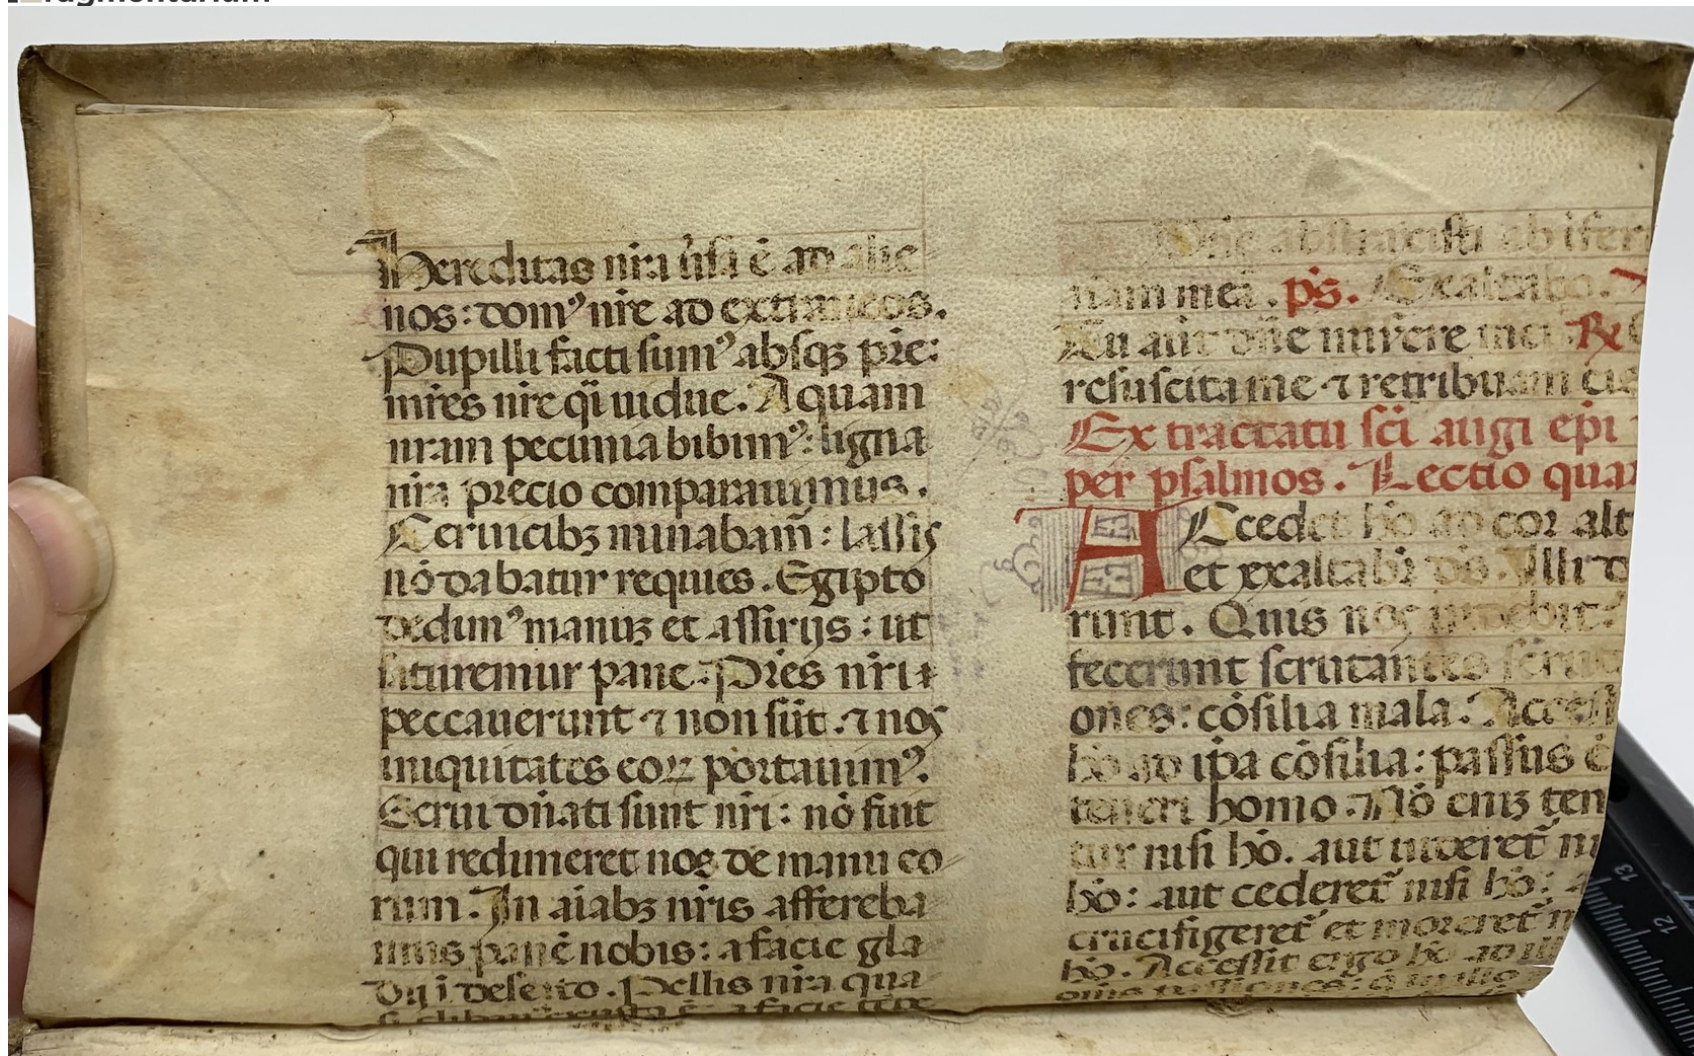 Hereditas nr̃a ũsa ẽ ad alie
nos: domꝰ nr̃e ad extraneos.
Pupilli facti sumꝰ absqꝫ pr̃e:
mr̃es nr̃e q̃i uidue. Aquam
nr̃am pecunia bibimꝰ: ligna
nr̃a precio comparauimus.
Ceruicibꝫ minabam̃: lassis
nõ dabatur requies. Egipto
dedimꝰ manuꝫ et assirijs: ut
saturemur pane. Pr̃es nr̃i
peccauerunt ⁊ non sũt. ⁊ nos
iniquitates eoꝝ portauimꝰ.
Serui dñati sunt nr̃i: nõ fuit
qui redimeret nos de manu eo
rum. In aĩabꝫ nr̃is affereba
mus panẽ nobis: a facie gla
dij ĩ deserto. Pellis nr̃a qua
si clibanꝰ exusta ẽ: a facie
Dñe abstraxisti ab ĩfer
nam meã. ps̃. Exaltabo.
Tu aũt dñe misere mei ℟
resuscita me ⁊ retribuam eis
Ex tractatu sc̃i augi ep̃i
per psalmos. Lectio quar
Accedet hõ ad cor alt
et exaltabr̃ ds̃. Illi d
runt. Quis nos uidebit?
fecerunt scrutantes scrut
ones: cõsilia mala. Accessit
hõ ad ip̃a cõsilia: passus ẽ
teneri homo. Nõ eniꝫ ten
tur nisi hõ. aut uideret̃ ni
hõ: aut cederet̃ nisi hõ: a
crucifigeret̃ et moreret̃ n
hõ. Accessit ergo hõ ad ill
om̃s passiones: q̃ ĩ illo